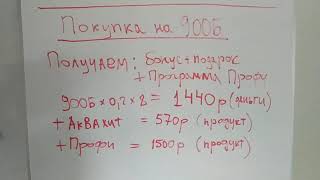 Покупка на 900Б
Получаем: бонус + подарок
+ Программа Профи
900Б х 0,2 х 8 = 1440р (деньги)
+ Аквахит = 570р (продукт)
+ Профи = 1500р (продукт)